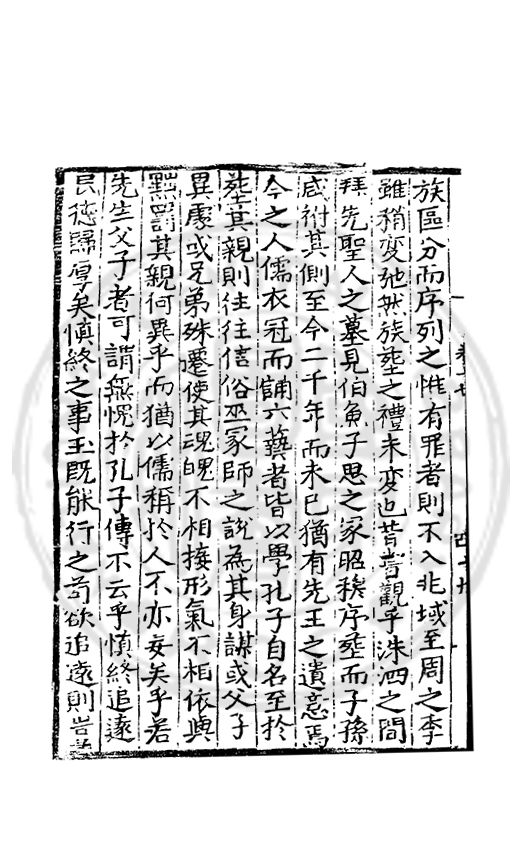 族區分而序列之惟有罪者則不入兆域至周之季
雖稍變弛然族塟之禮未變也昔嘗觀乎洙泗之間
拜先聖人之墓見伯魚子思之冢昭穆序塟而子孫
咸祔其側至今二千年而未已猶有先王之遺意焉
今之人儒衣冠而誦六藝者皆以學孔子自名至於
塟其親則往往信俗巫冢師之說為其身謀或父子
異處或兄弟殊遷使其魂魄不相接形氣不相依與
黥罰其親何異乎而猶以儒稱於人不亦妄矣乎若
先生父子者可謂無愧於孔子傳不云乎慎終追遠
民德歸厚矣慎終之事玉既能行之苟欲追遠則豈